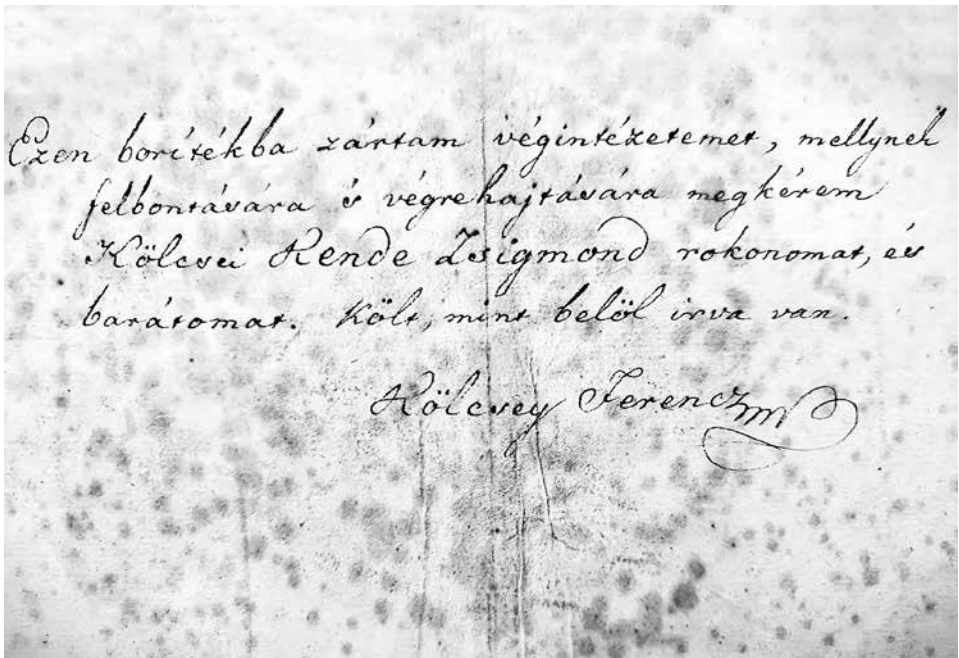 Ezen borítékba zártam végintézetemet, mellynek
felbontására 's végrehajtására megkérem
Kölcsei Kende Zsigmond rokonomat, és
barátomat. Költ, mint belöl irva van.
Kölcsey Ferencz